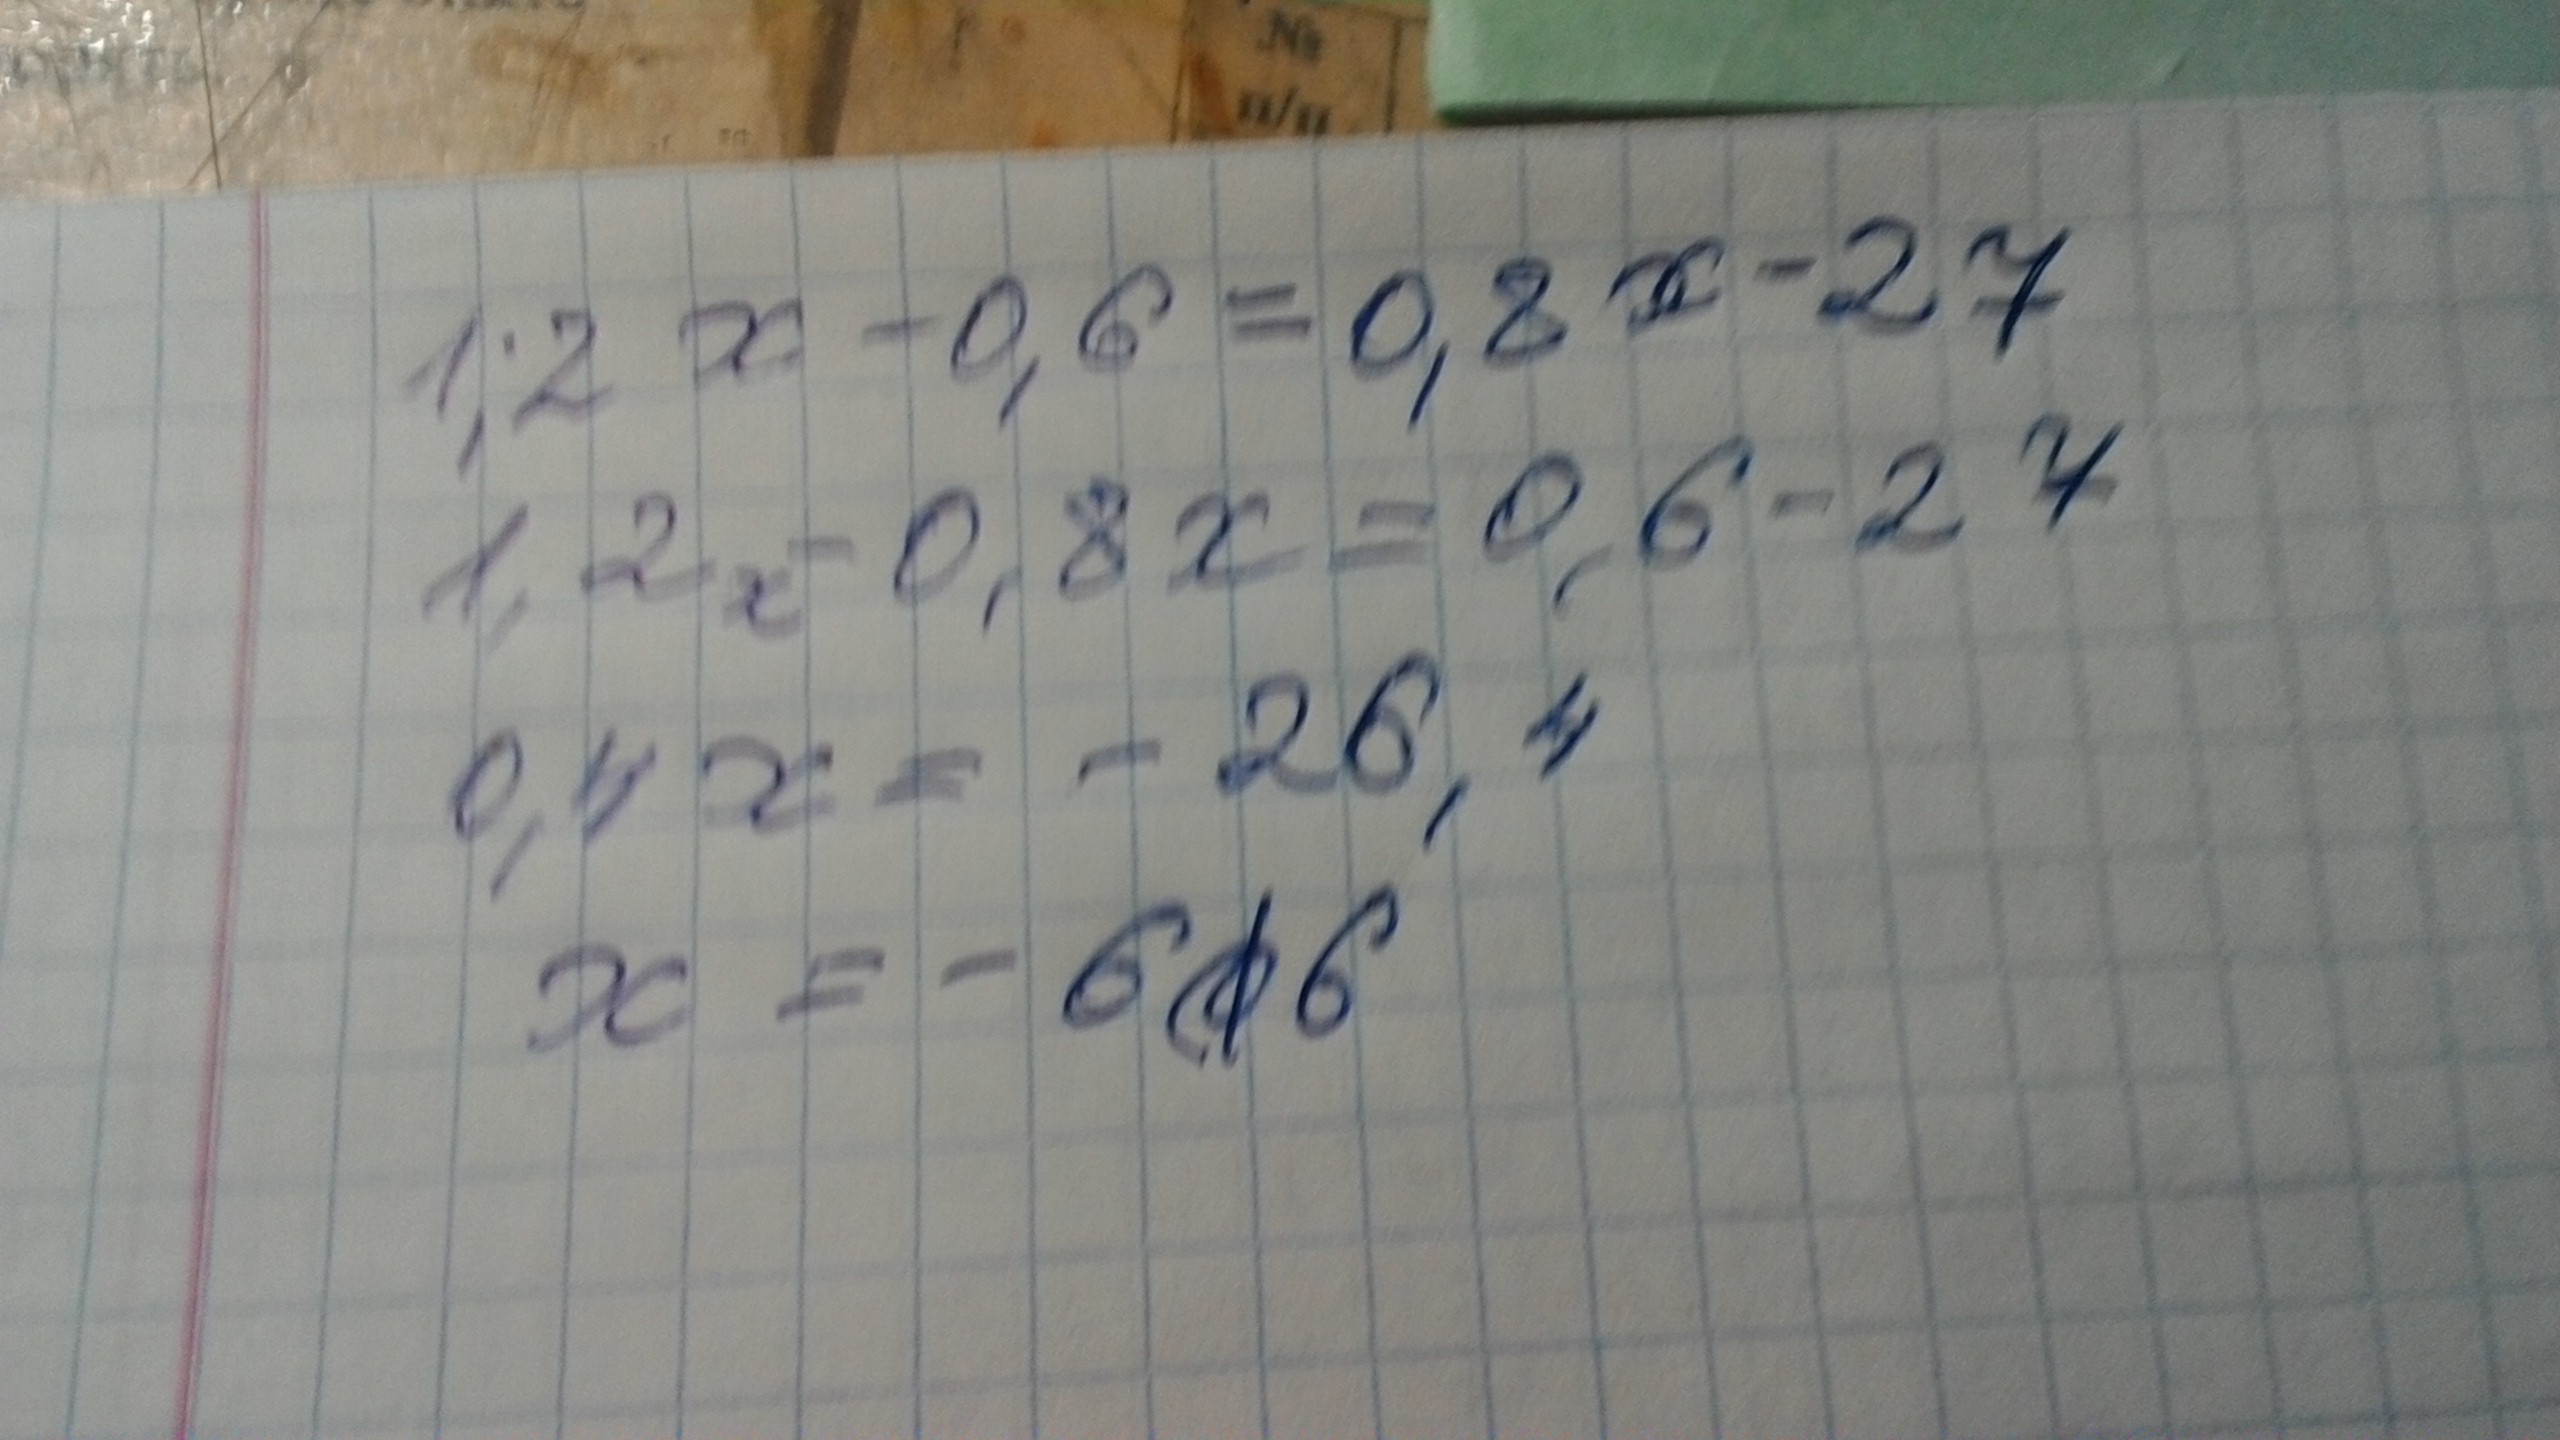 №
п/п
1,2x-0,6=0,8x-27
1,2x-0,8x=0,6-27
0,4x=-26,4
x=-66